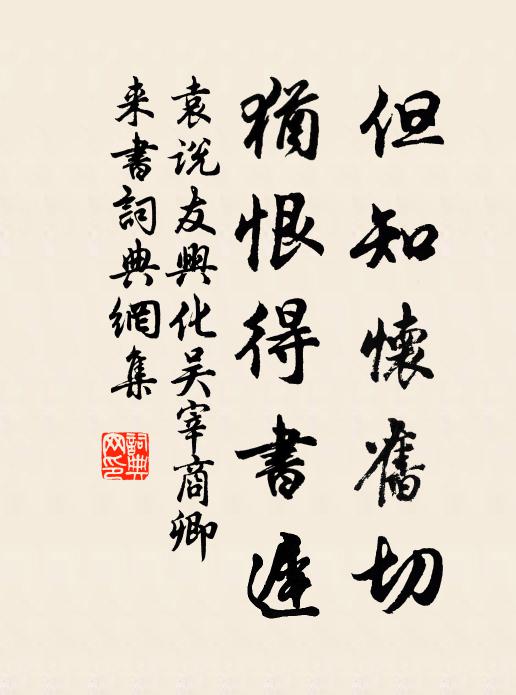 但知懷舊切
猶恨得書遲
袁説友興化吴宰商卿
来書詞典網集
詞典
网印